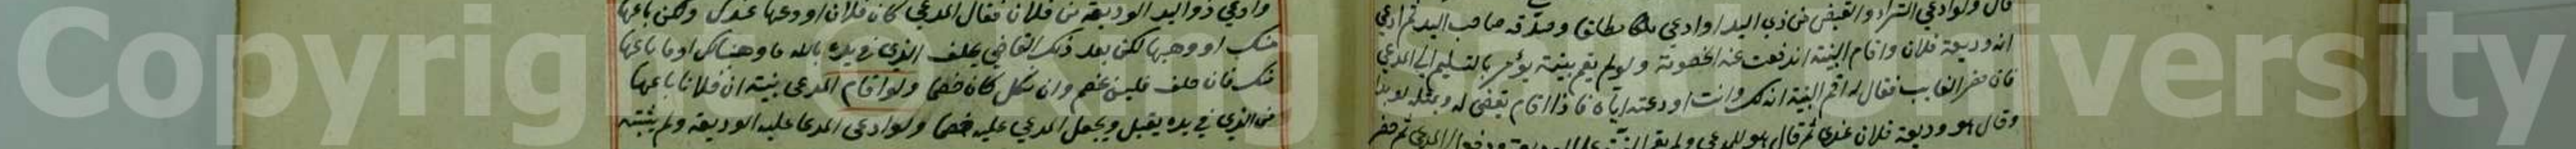 قال ولو ادعى الشراء والقبض من ذي اليد او ادعى ملكا مطلقا وصدقه صاحب اليد ثم ادعى
انه وديعة فلان واقام البينة اندفعت عنه الخصومة ولو لم يقم بينة يؤمر بالتسليم الى المدعي
فان حضر الغائب فقال له اقم البينة انه لك وانت اودعته اياه فاذا اقام يقضى له وبمثله لو
وقال هو وديعة فلان عندي ثم قال هو للمدعي ولم
وادعى ذو اليد الوديعة من فلان فقال المدعي كان فلان اودعها عندك ولكن باعها
منك او وهبها لكن بعد ذلك القاضي يحلف الذي في يده بالله ما وهبها لك او ما باعها
منك فان حلف فليس خصم وان نكل كان خصما ولو اقام المدعي بينة ان فلانا باعها
من الذي في يده يقبل ويجعل المدعي عليه خصما ولو ادعى المدعا عليه الوديعة ولم يثبته
Copyrig ng iversity